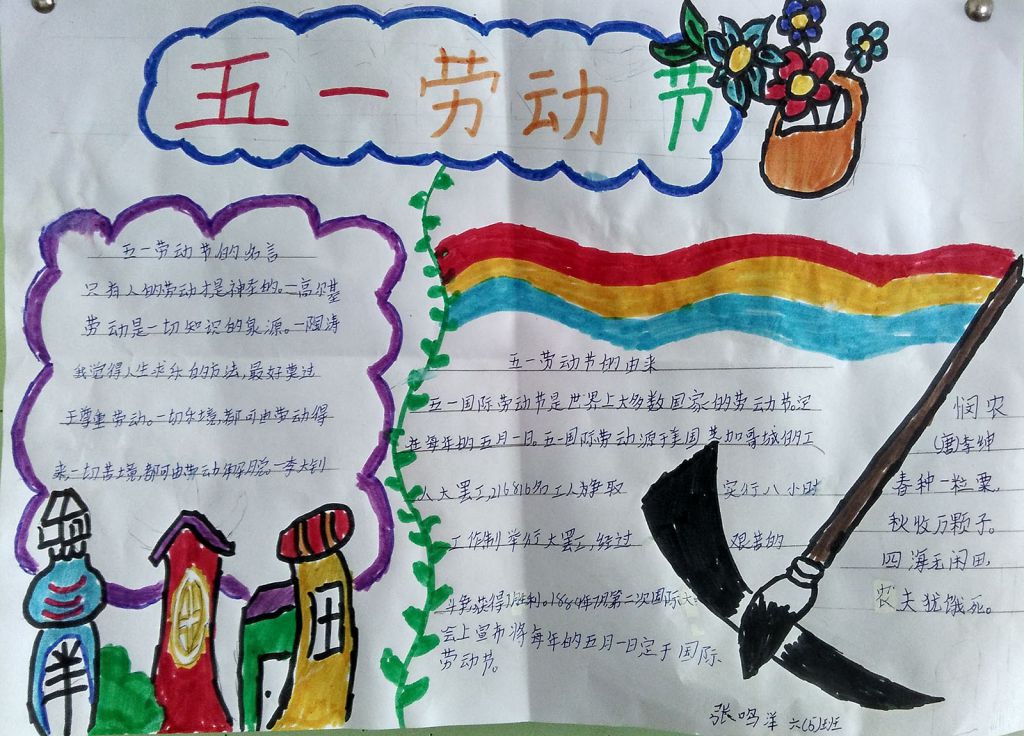 五一劳动节
五一劳动节的名言
只有人的劳动才是神圣的。一高尔基
劳动是一切知识的泉源。一陶涛
我觉得人生求乐的方法,最好莫过
于尊重劳动。一切乐境,都可由劳动得
来,一切苦境,都可由劳动解脱。一李大钊
五一劳动节的由来
五一国际劳动节是世界上大多数国家的劳动节。定
在每年的五月一日。五一国际劳动源于美国芝加哥城的工
人大罢工,216816名工人为争取 实行八小时
工作制举行大罢工,经过 艰苦的
斗争,获得了胜利。1889年7月第二次国际大
会上宣布将每年的五月一日定于国际
劳动节。
悯农
(唐)李绅
春种一粒粟,
秋收万颗子。
四海无闲田,
农夫犹饿死。
张鸣洋 六(5)班